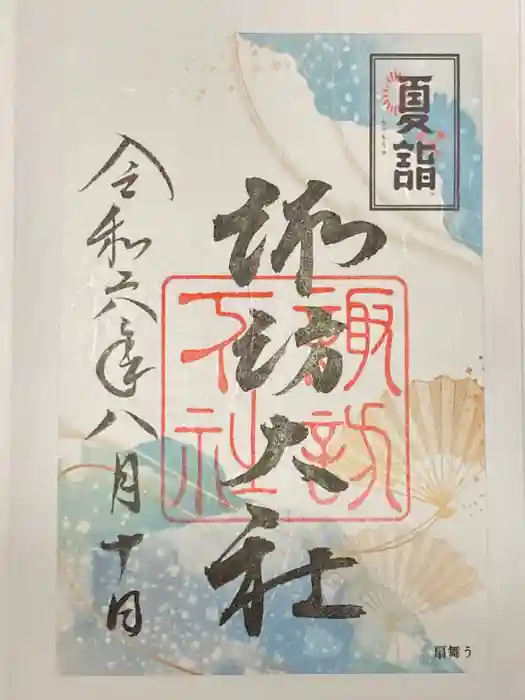 夏詣
諏訪大社
諏訪大社
令和六年八月十日
扇舞う